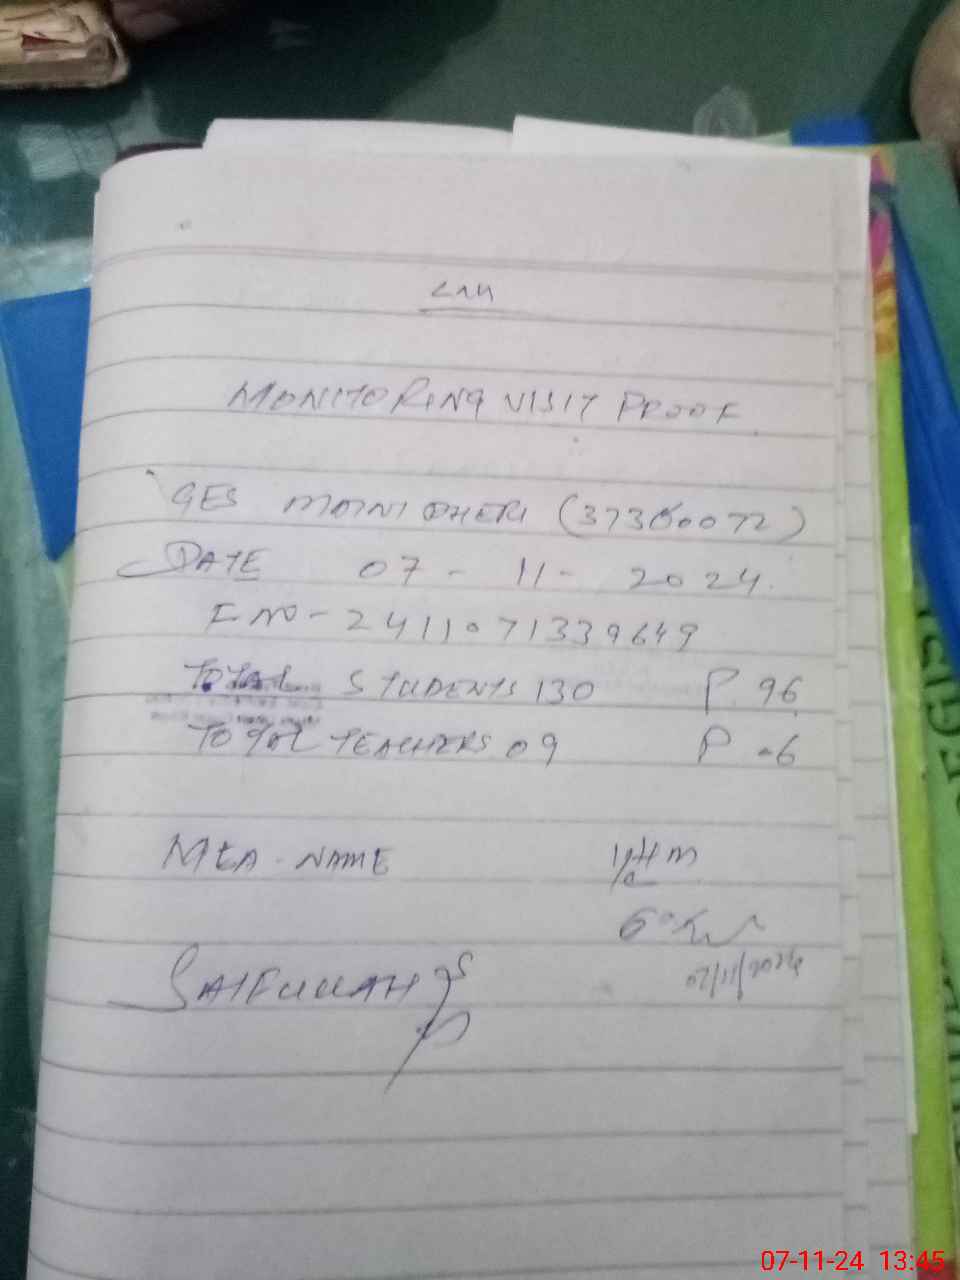 MONITORING VISIT PROOF
GES MOINI DHERI (37360072)
DATE 07 - 11 - 2024.
I NO - 2411071339649
TOTAL STUDENTS 130 P. 96
TOTAL TEACHERS 09 P -6
MEA - NAME
SAIFULLAH
07/11/2024
07-11-24 13:45